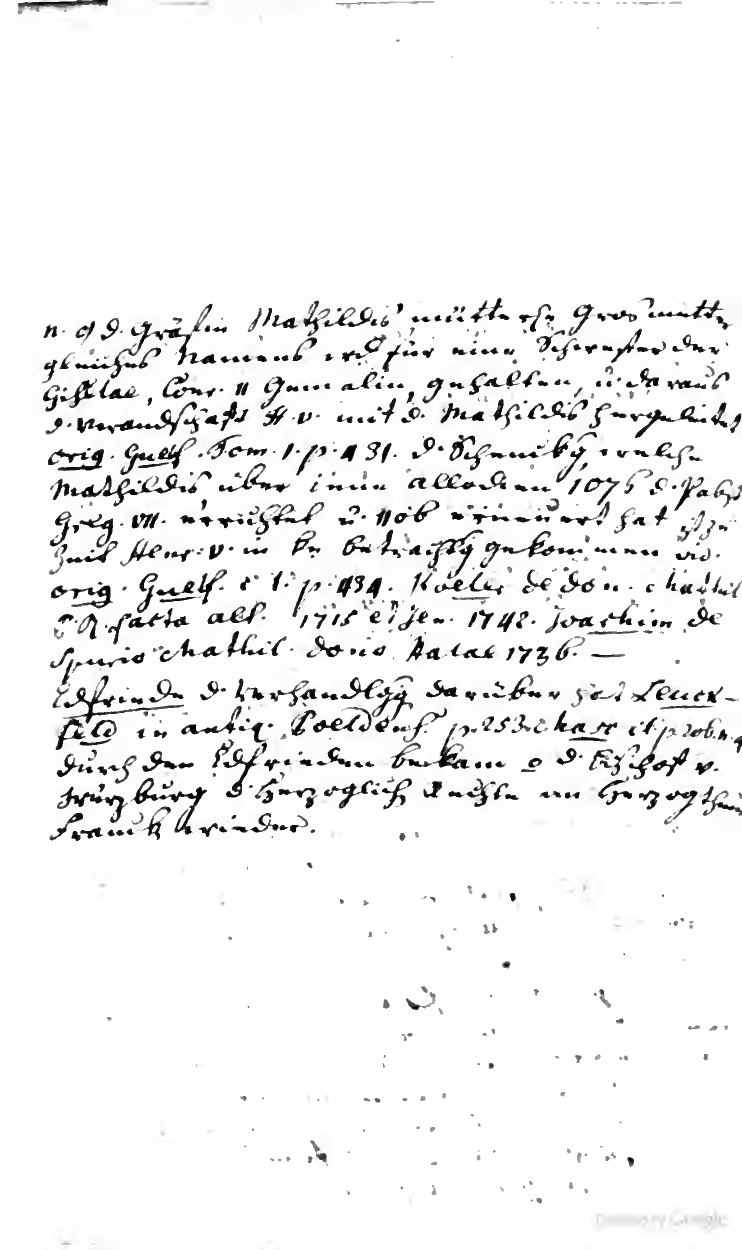 n. 9 d. Gräfin Mathildis mütterche Grosmutter
gleiches Namens wird für eine Schwester der
Giselae, Conr. II Gemalin, gehalten, u. daraus
d. Verandschaft H. V. mit d. Mathildis hergeleitet
orig. Guelf. Tom. 1. p. 431. d. Schenckg, welche
Mathildis über ihre allodien 1076 d. Pabst
Greg. VII. errichtet u. 1106 erneuert hat ist zu
Zeit Henr. V. in betrachtg gekommen vid.
orig. Guelf. c. 1. p. 434. Koeler de don. Mathil
facta alt. 1715 et Jen. 1742. Joachim de
Spurio Mathil. dono Halae 1736. —
Ldfriede d. Verhandlgg darüber hat Leuck-
feld in antiq. Poeldens. p. 253.
durch den Ldfrieden bekam d. Bischof v.
Würzburg d. Herzoglich Rechte am Herzogthum
Franck wieder.